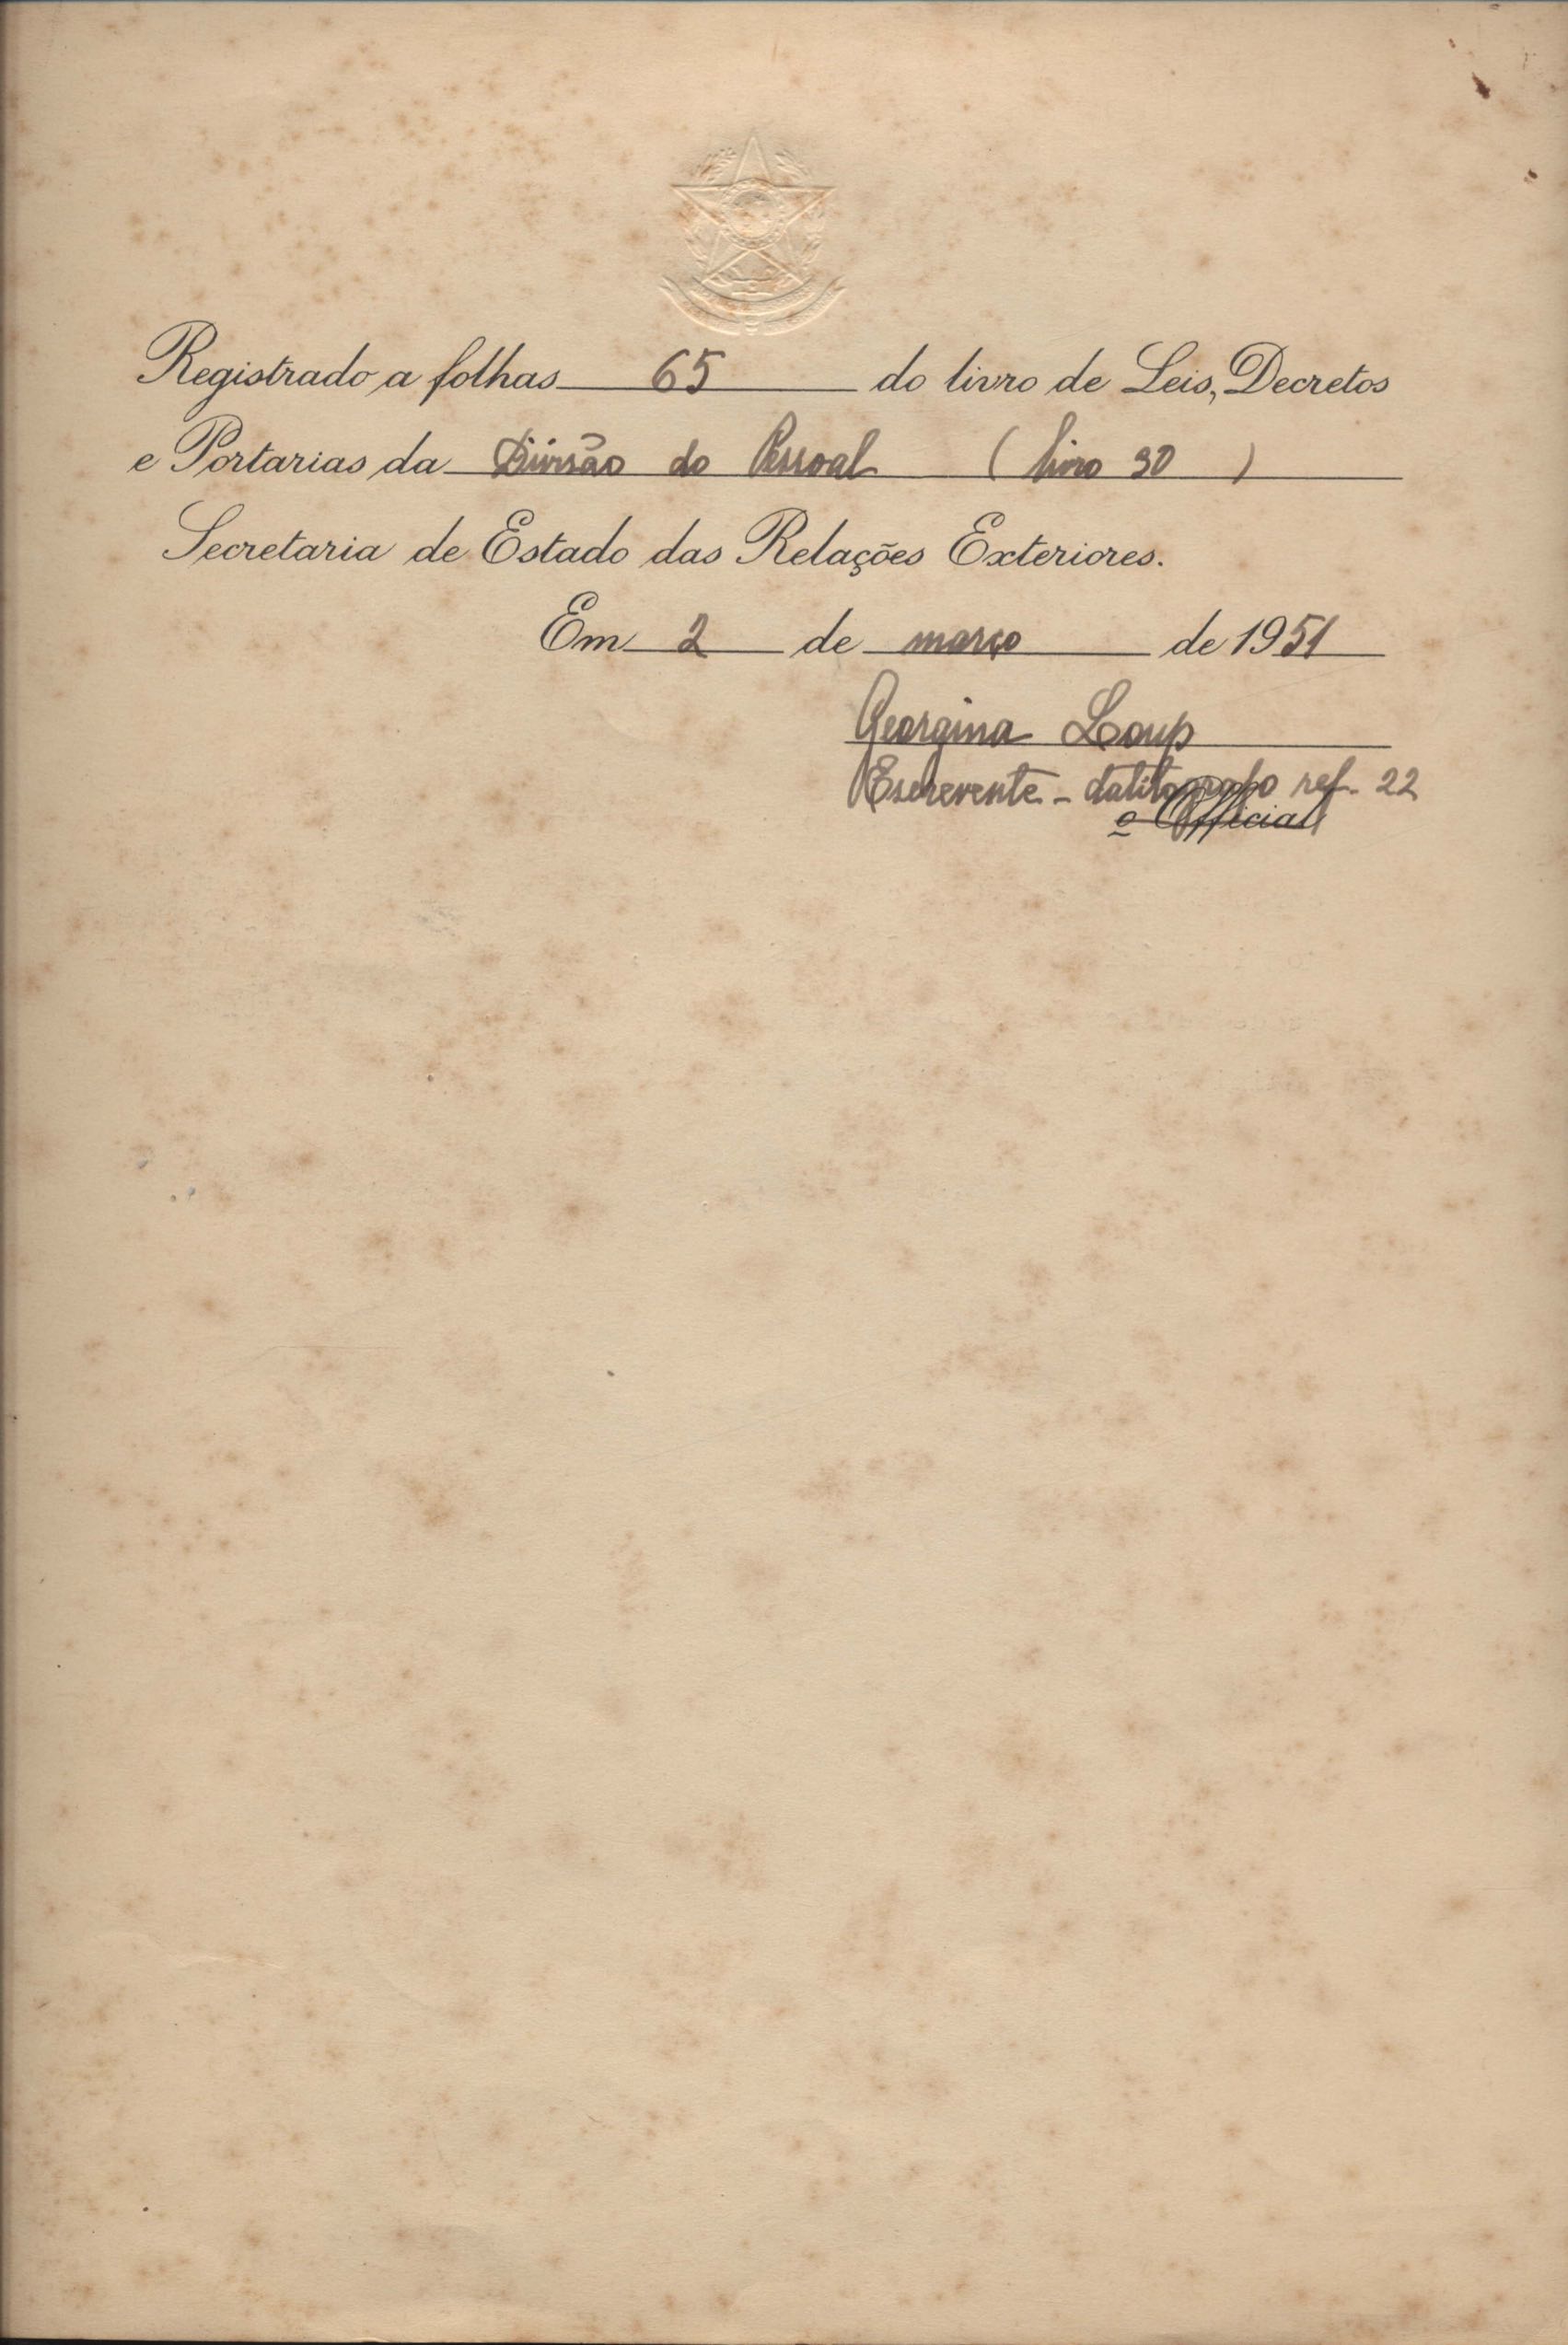 Registrado a folhas 65 do livro de Leis, Decretos
e Portarias da Divisão do Pessoal (livro 30)
Secretaria de Estado das Relações Exteriores.
Em 2 de março de 1951
Georgina Loup
Escrevente-datilografo ref. 22
o Official